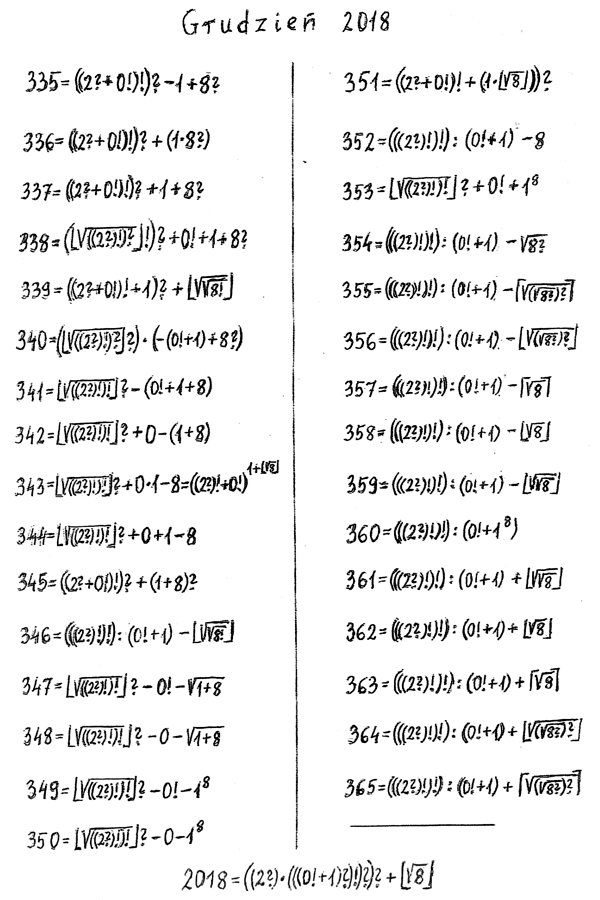 Grudzień 2018
335=((2?+0!)!)?-1+8?
336=((2?+0!)!)?+(1·8?)
337=((2?+0!)!)?+1+8?
338=(⌊√((2?)!)?⌋!)?+0!+1+8?
339=((2?+0!)!+1)?+⌊√√8!⌋
340=(⌊√((2?)!)?⌋?)·(-(0!+1)+8?)
341=⌊√((2?)!)!⌋?-(0!+1+8)
342=⌊√((2?)!)!⌋?+0-(1+8)
343=⌊√((2?)!)!⌋?+0·1-8=((2?)!+0!)^(1+⌊√8⌋)
344=⌊√((2?)!)!⌋?+0+1-8
345=((2?+0!)!)?+(1+8)?
346=(((2?)!)!):(0!+1)-⌊√√8!⌋
347=⌊√((2?)!)!⌋?-0!-√1+8
348=⌊√((2?)!)!⌋?-0-√1+8
349=⌊√((2?)!)!⌋?-0!-1⁸
350=⌊√((2?)!)!⌋?-0-1⁸
351=((2?+0!)!+(1·⌊√8⌋))?
352=(((2?)!)!):(0!+1)-8
353=⌊√((2?)!)!⌋?+0!+1⁸
354=(((2?)!)!):(0!+1)-√8?
355=(((2?)!)!):(0!+1)-⌈√(√8?)?⌉
356=(((2?)!)!):(0!+1)-⌊√(√8?)?⌋
357=(((2?)!)!):(0!+1)-⌈√8⌉
358=(((2?)!)!):(0!+1)-⌊√8⌋
359=(((2?)!)!):(0!+1)-⌊√√8⌋
360=(((2?)!)!):(0!+1⁸)
361=(((2?)!)!):(0!+1)+⌊√√8⌋
362=(((2?)!)!):(0!+1)+⌊√8⌋
363=(((2?)!)!):(0!+1)+⌈√8⌉
364=(((2?)!)!):(0!+1)+⌊√(√8?)?⌋
365=(((2?)!)!):(0!+1)+⌈√(√8?)?⌉
2018=((2?)·(((0!+1)?)!)?)?+⌊√8⌋